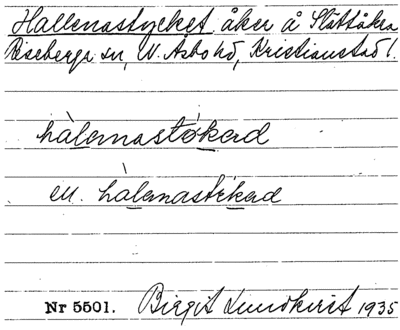 Hallenastycket åker å Slättåkra
Risebergs sn, N. Åsbo hd, Kristianstad l.
hàlenastø̀kəd
el. hàlenastɛkəd
Nr 5501. Birgit Lundkvist 1935